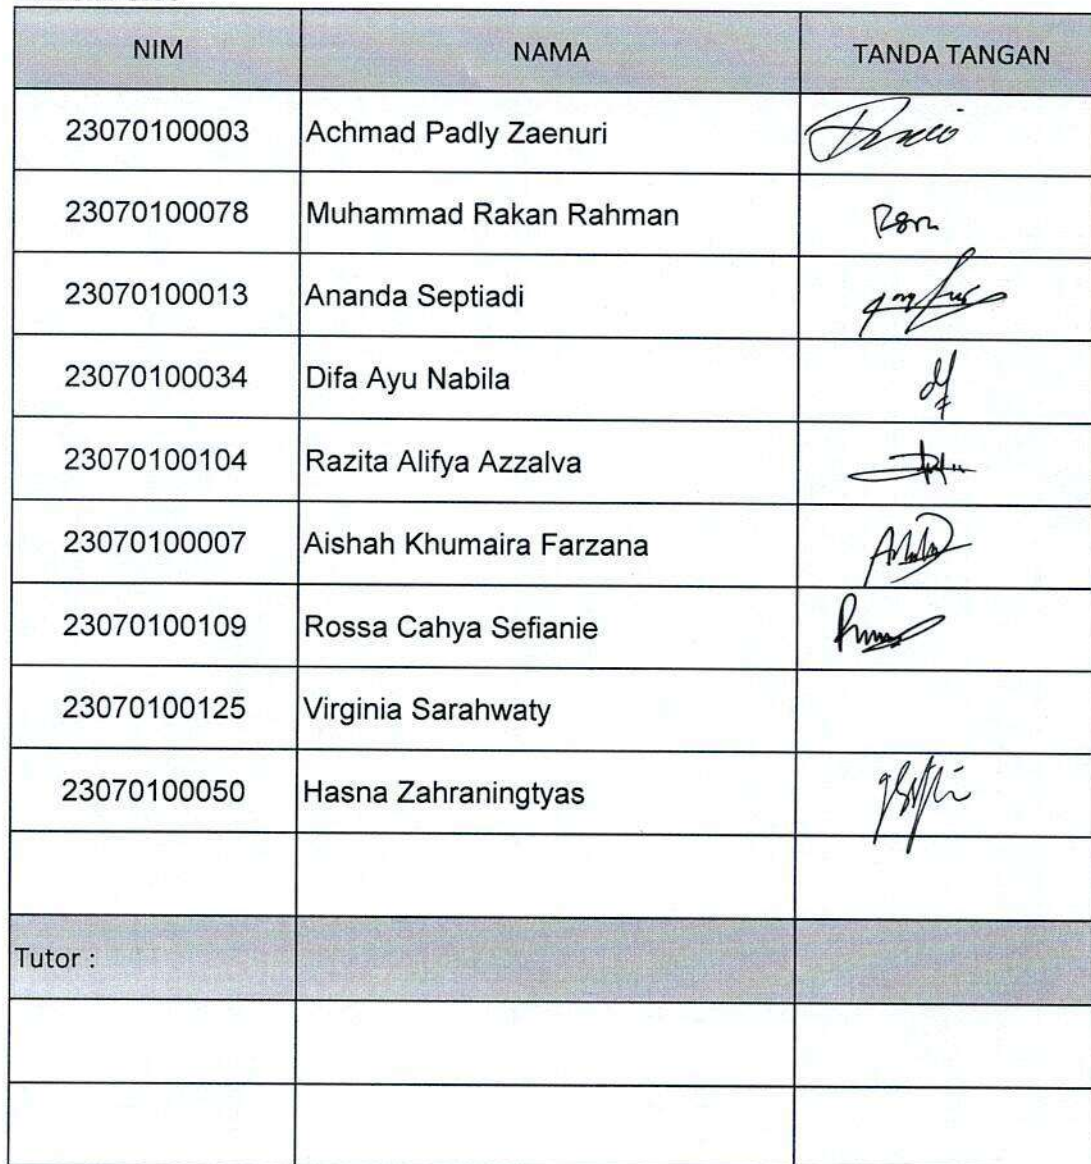 NIM NAMA TANDA TANGAN
23070100003 Achmad Padly Zaenuri
23070100078 Muhammad Rakan Rahman
23070100013 Ananda Septiadi
23070100034 Difa Ayu Nabila
23070100104 Razita Alifya Azzalva
23070100007 Aishah Khumaira Farzana
23070100109 Rossa Cahya Sefianie
23070100125 Virginia Sarahwaty
23070100050 Hasna Zahraningtyas
Tutor :